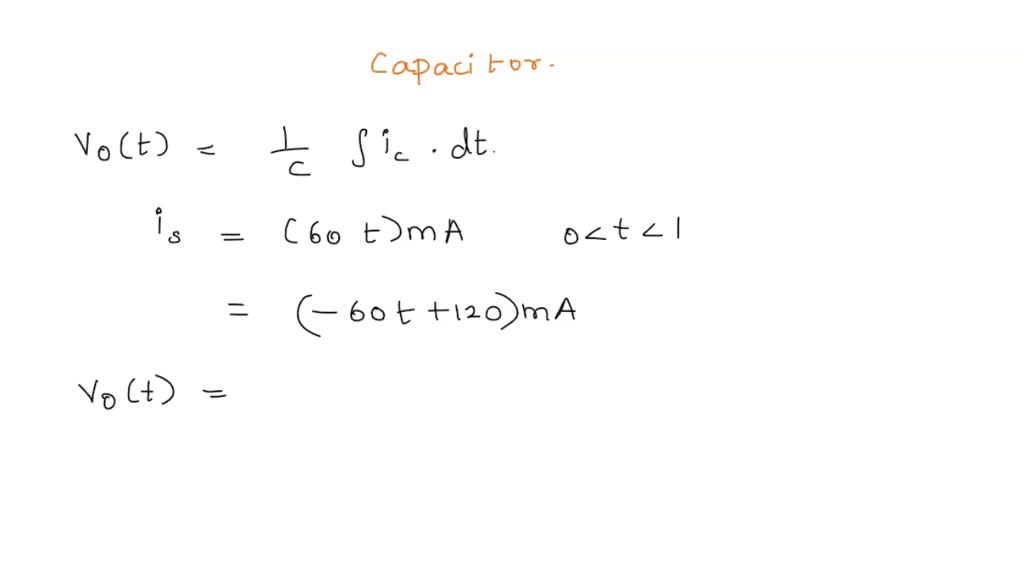 Capacitor.
V₀(t) = 1/C ∫ i_c . dt.
i_s = (60 t) mA 0 < t < 1
= (-60t + 120) mA
V₀(t) =